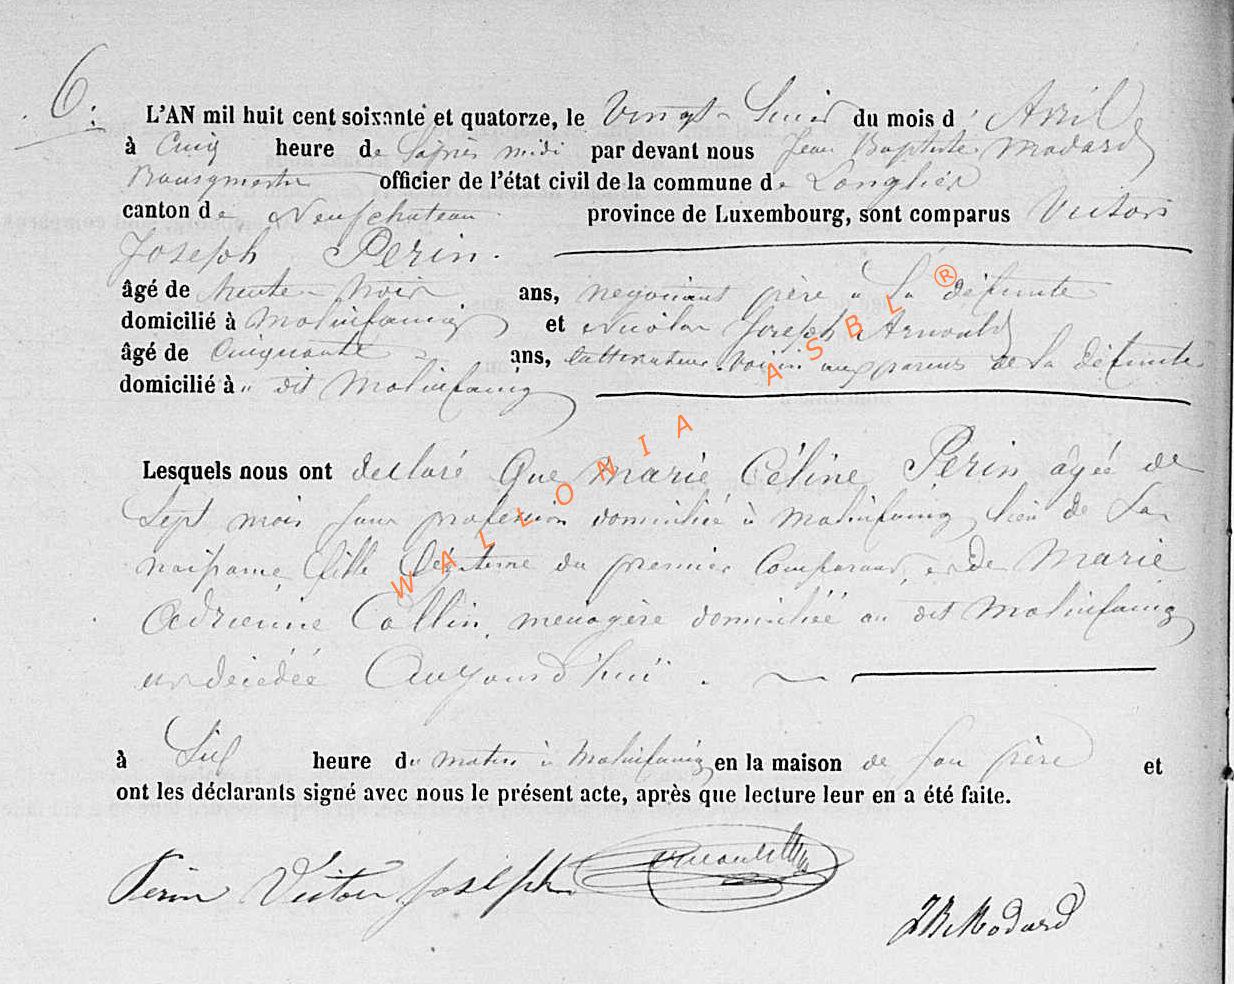 6.
L'AN mil huit cent soixante et quatorze, le Vingt- du mois d' Avril
à Cinq heure de l'après midi par devant nous Jean Baptiste Modard
Bourgmestre officier de l'état civil de la commune de Longlier
canton de Neufchateau province de Luxembourg, sont comparus Victor
Joseph Perin.
âgé de trente-trois ans, negociant père à la défunte
domicilié à Molinfaing et Nicolas Joseph Arnould
âgé de Cinquante ans, cultivateur voisin aux parens de la défunte
domicilié à dit Molinfaing
Lesquels nous ont declaré Que Marie Céline Perin âgée de
Sept mois sans profession domiciliée à Molinfaing lieu de Sa
naissance fille légitime du premier Comparant, et de Marie
Adrienne Collin, menagère domiciliée au dit Molinfaing
est décédée Aujourd'hui.
à heure du matin à Molinfaing en la maison de son père et
ont les déclarants signé avec nous le présent acte, après que lecture leur en a été faite.
Perin Victor Joseph Arnould
JB Modard
WALLONIA ASBL ®